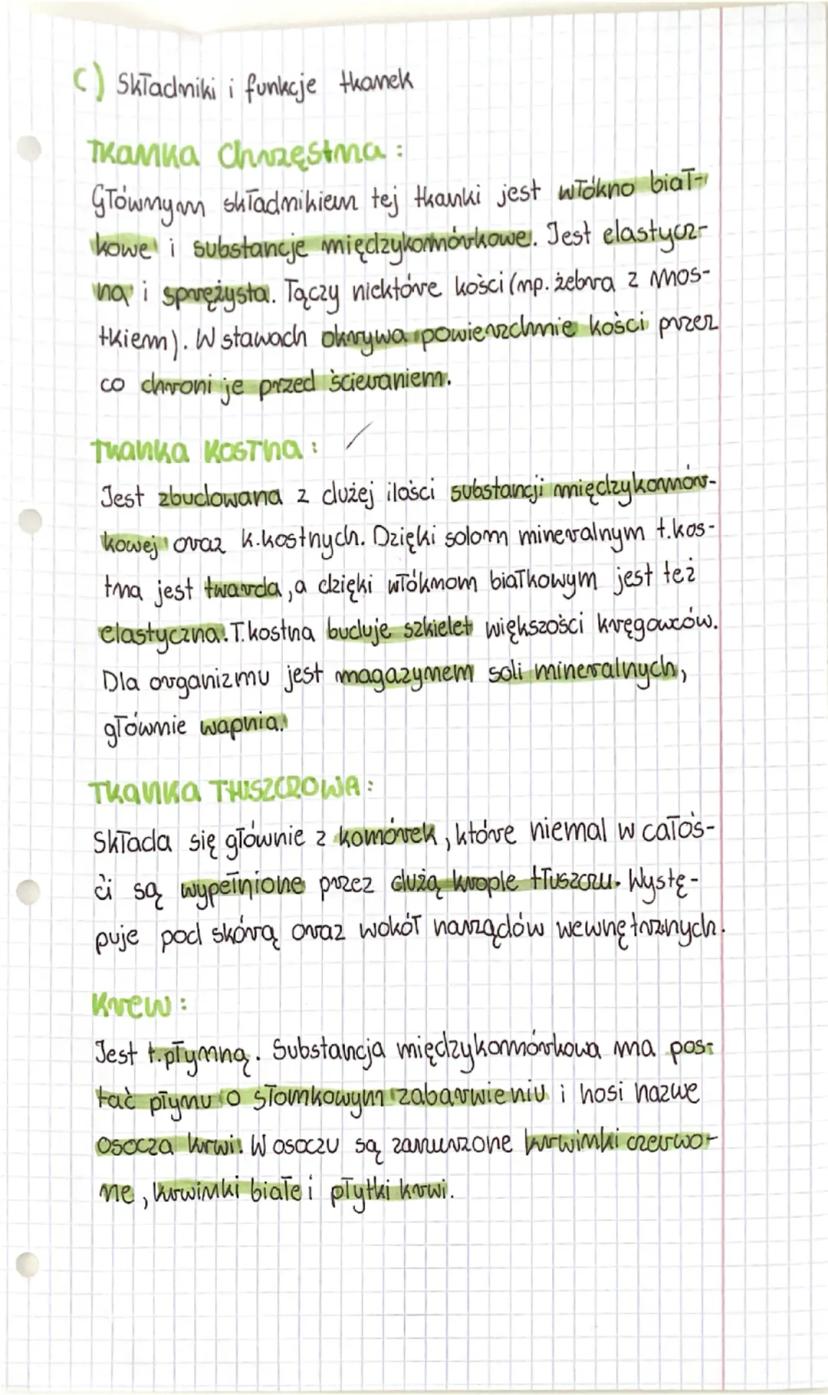 C) Składniki i funkcje tkanek
Tkanka Chrzęstna:
Głównym składnikiem tej tkanki jest włókno biał-
kowe i substancje międzykomórkowe. Jest elastycz-
na i sprężysta. Łączy niektóre kości (np. żebra z mos-
tkiem). W stawach okrywa powierzchnie kości przez
co chroni je przed ścieraniem.
Tkanka Kostna:
Jest zbudowana z dużej ilości substancji międzykomór-
kowej oraz k.kostnych. Dzięki solom mineralnym t.kos-
tna jest twarda, a dzięki włóknom białkowym jest też
elastyczna. T.kostna buduje szkielet większości kręgowców.
Dla organizmu jest magazynem soli mineralnych,
głównie wapnia.
Tkanka TŁUSZCZOWA:
Składa się głównie z komórek, które niemal w całoś-
ći są wypełnione przez dużą krople tłuszczu. Wystę-
puje pod skórą oraz wokół narządów wewnętrznych.
Krew:
Jest t.płynną. Substancja międzykomórkowa ma pos-
tać płynu o słomkowym zabarwieniu i nosi nazwe
osocza krwi. W osoczu są zanurzone krwinki czerwo-
ne, krwinki białe i płytki krwi.